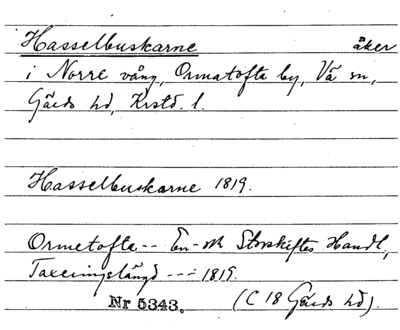 Hasselbuskarne åker
i Norre vång, Ormatofta by, Vä sn,
Gärds hd, Krstd. l.
Hasselbuskarne 1819.
Ormetofta -- En- och Storskiftes Handl,
Taxeringslängd --- 1819.
Nr 5343. (C 18 Gärds hd).